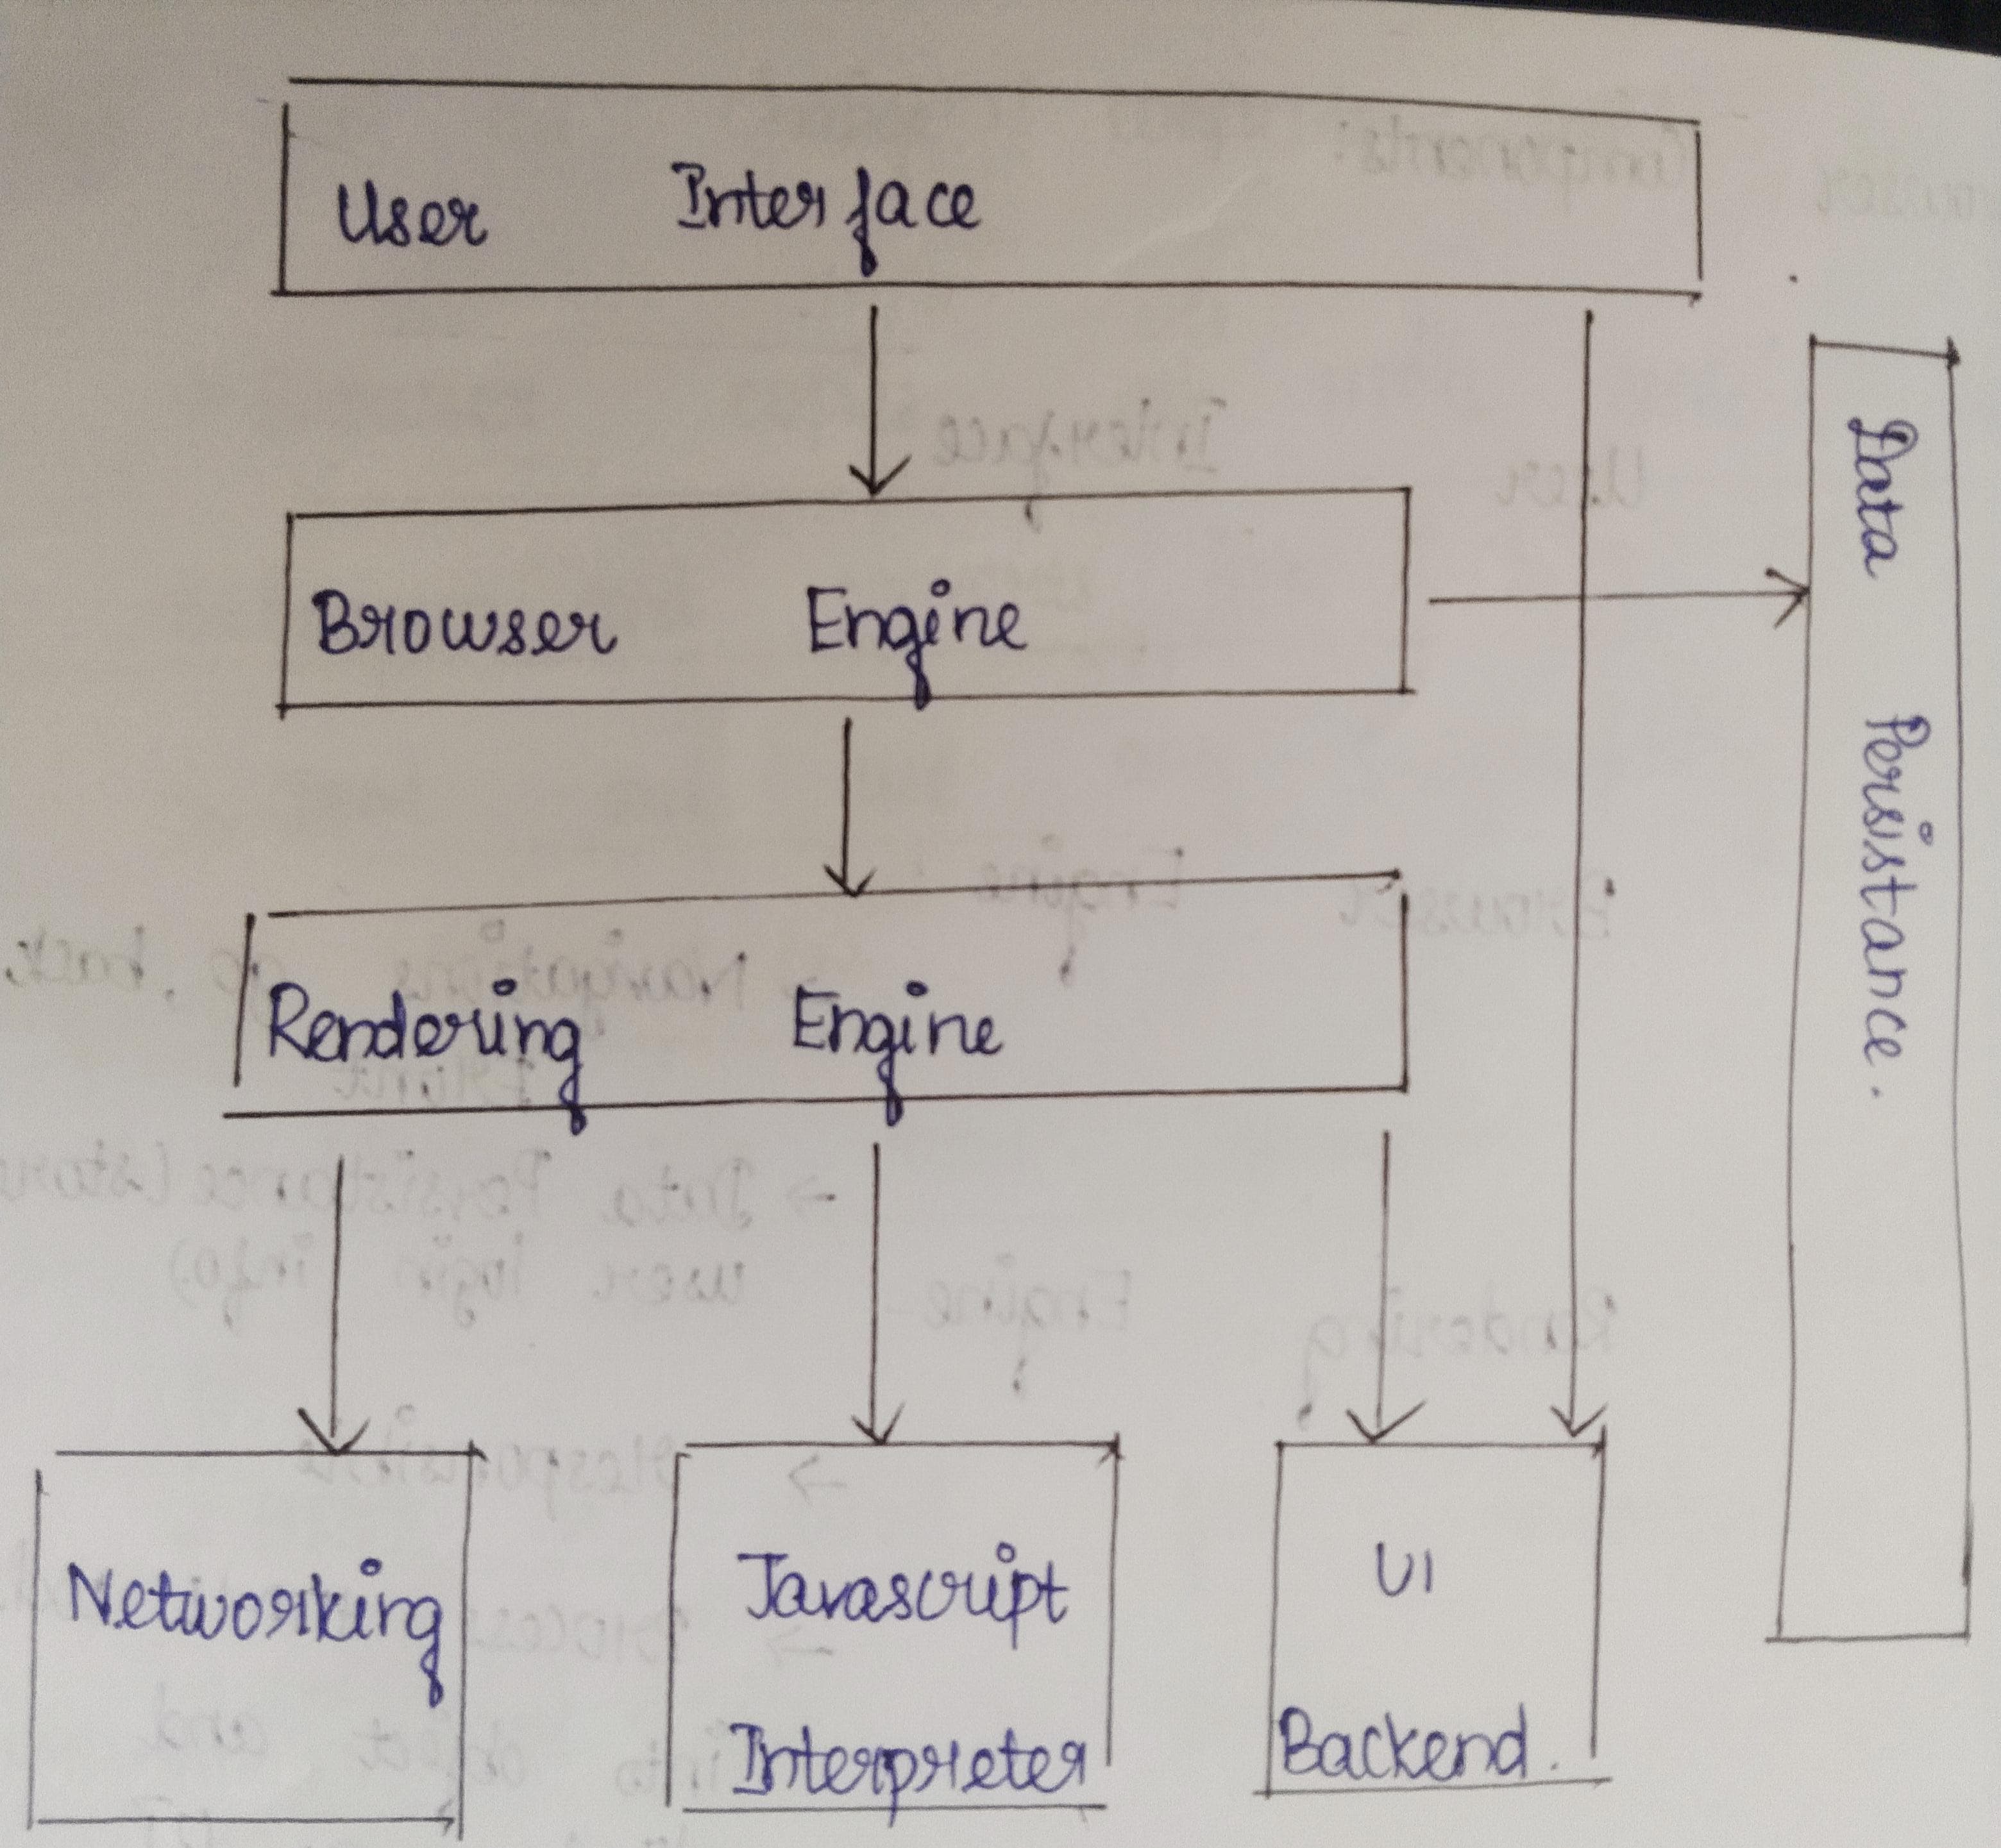 User Interface
Browser Engine
Data Persistance.
Rendering Engine
Networking
Javascript
Interpreter
UI
Backend.